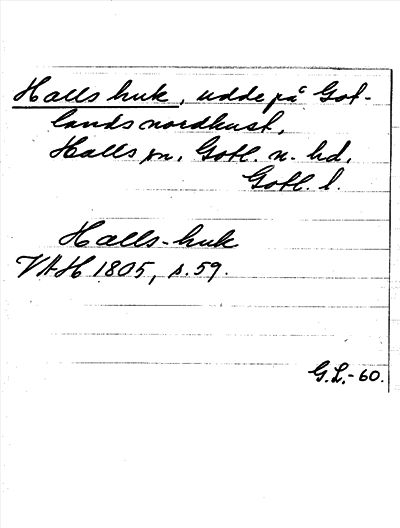 Halls huk, udde på Got-
lands nordkust,
Halls sn, Gotl. n. hd,
Gotl. l.
Halls-huk
VAH 1805, s. 59.
G.L.-60.